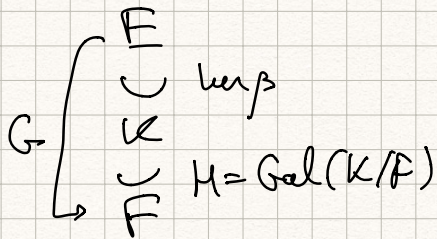 E
∪ ker β
G K
∪ H = Gal(K/F)
F